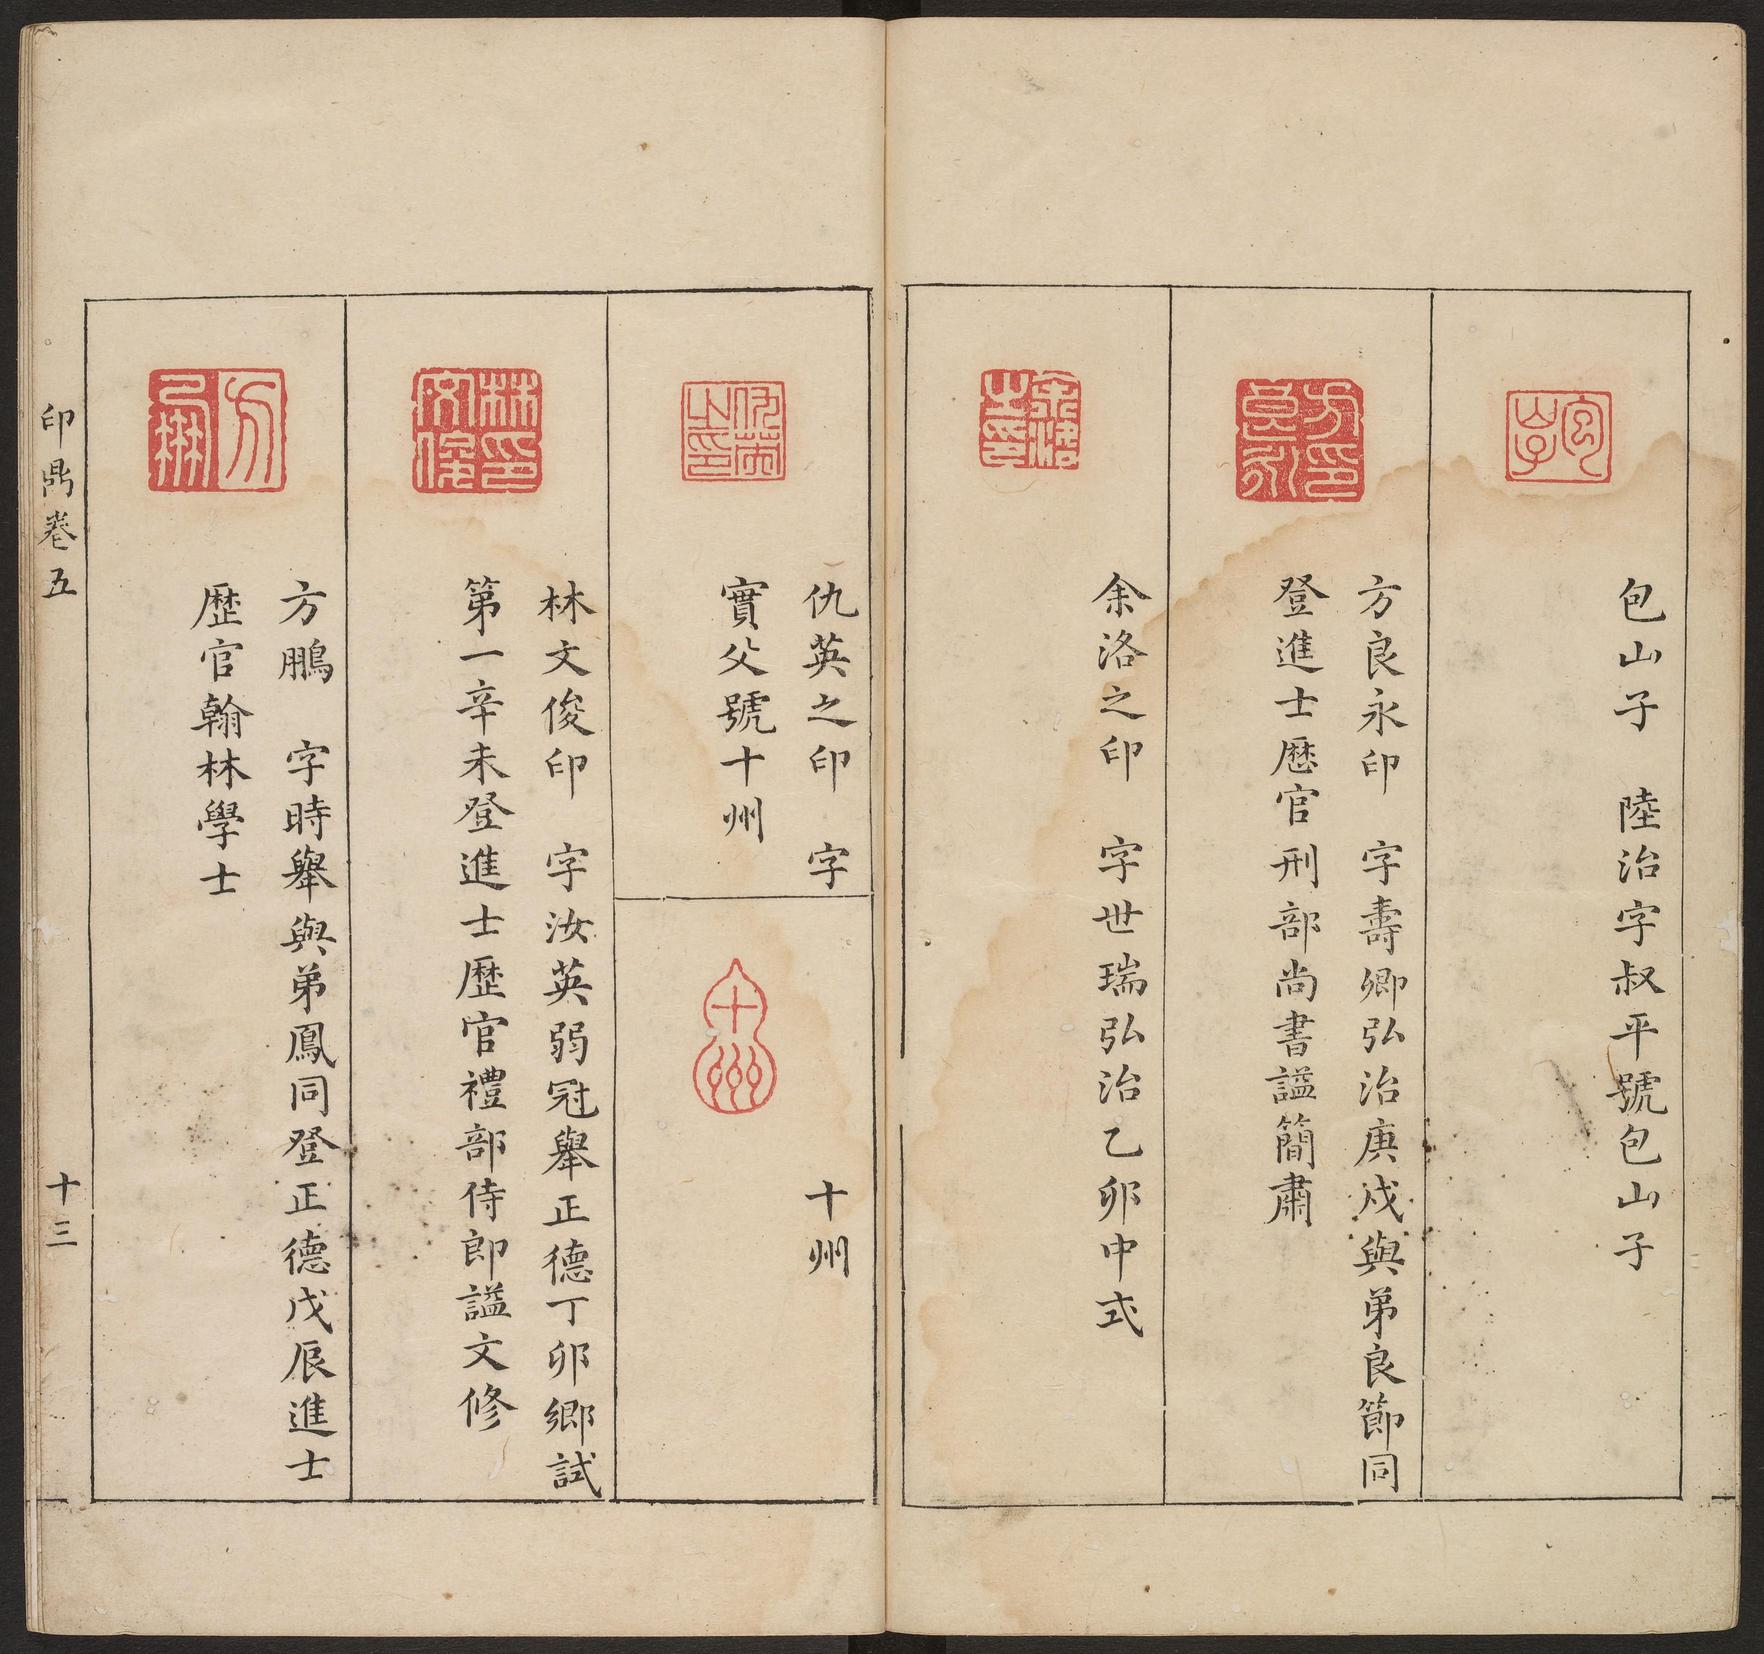 包山子　陸治字叔平號包山子
方良永印　字壽卿弘治庚戌與弟良節同
登進士歷官刑部尚書謚簡肅
余洛之印　字世瑞弘治乙卯中式
仇英之印　字
實父號十州
十州
十州
林文俊印　字汝英弱冠舉正德丁卯鄉試
第一辛未登進士歷官禮部侍郎謚文修
方鵬　字時舉與弟鳳同登正德戊辰進士
歷官翰林學士
印鼎卷五
十三
包山子
方良永印
余洛之印
仇英之印
林文俊印
方鵬